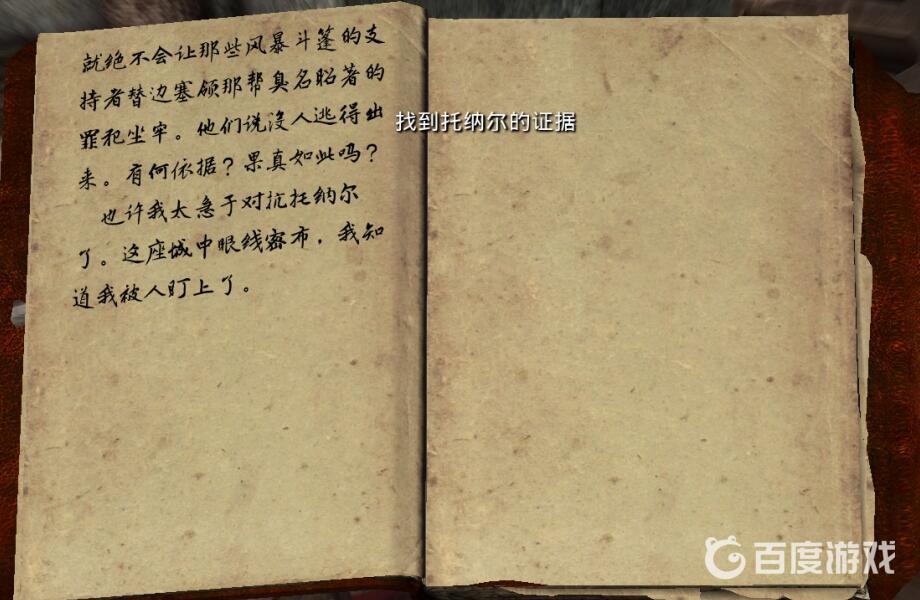 就绝不会让那些风暴斗篷的支
持者替边塞领那帮臭名昭著的
罪犯坐牢。他们说没人逃得出
来。有何依据？果真如此吗？
也许我太急于对抗托纳尔
了。这座城中眼线密布，我知
道我被人盯上了。
找到托纳尔的证据
百度游戏